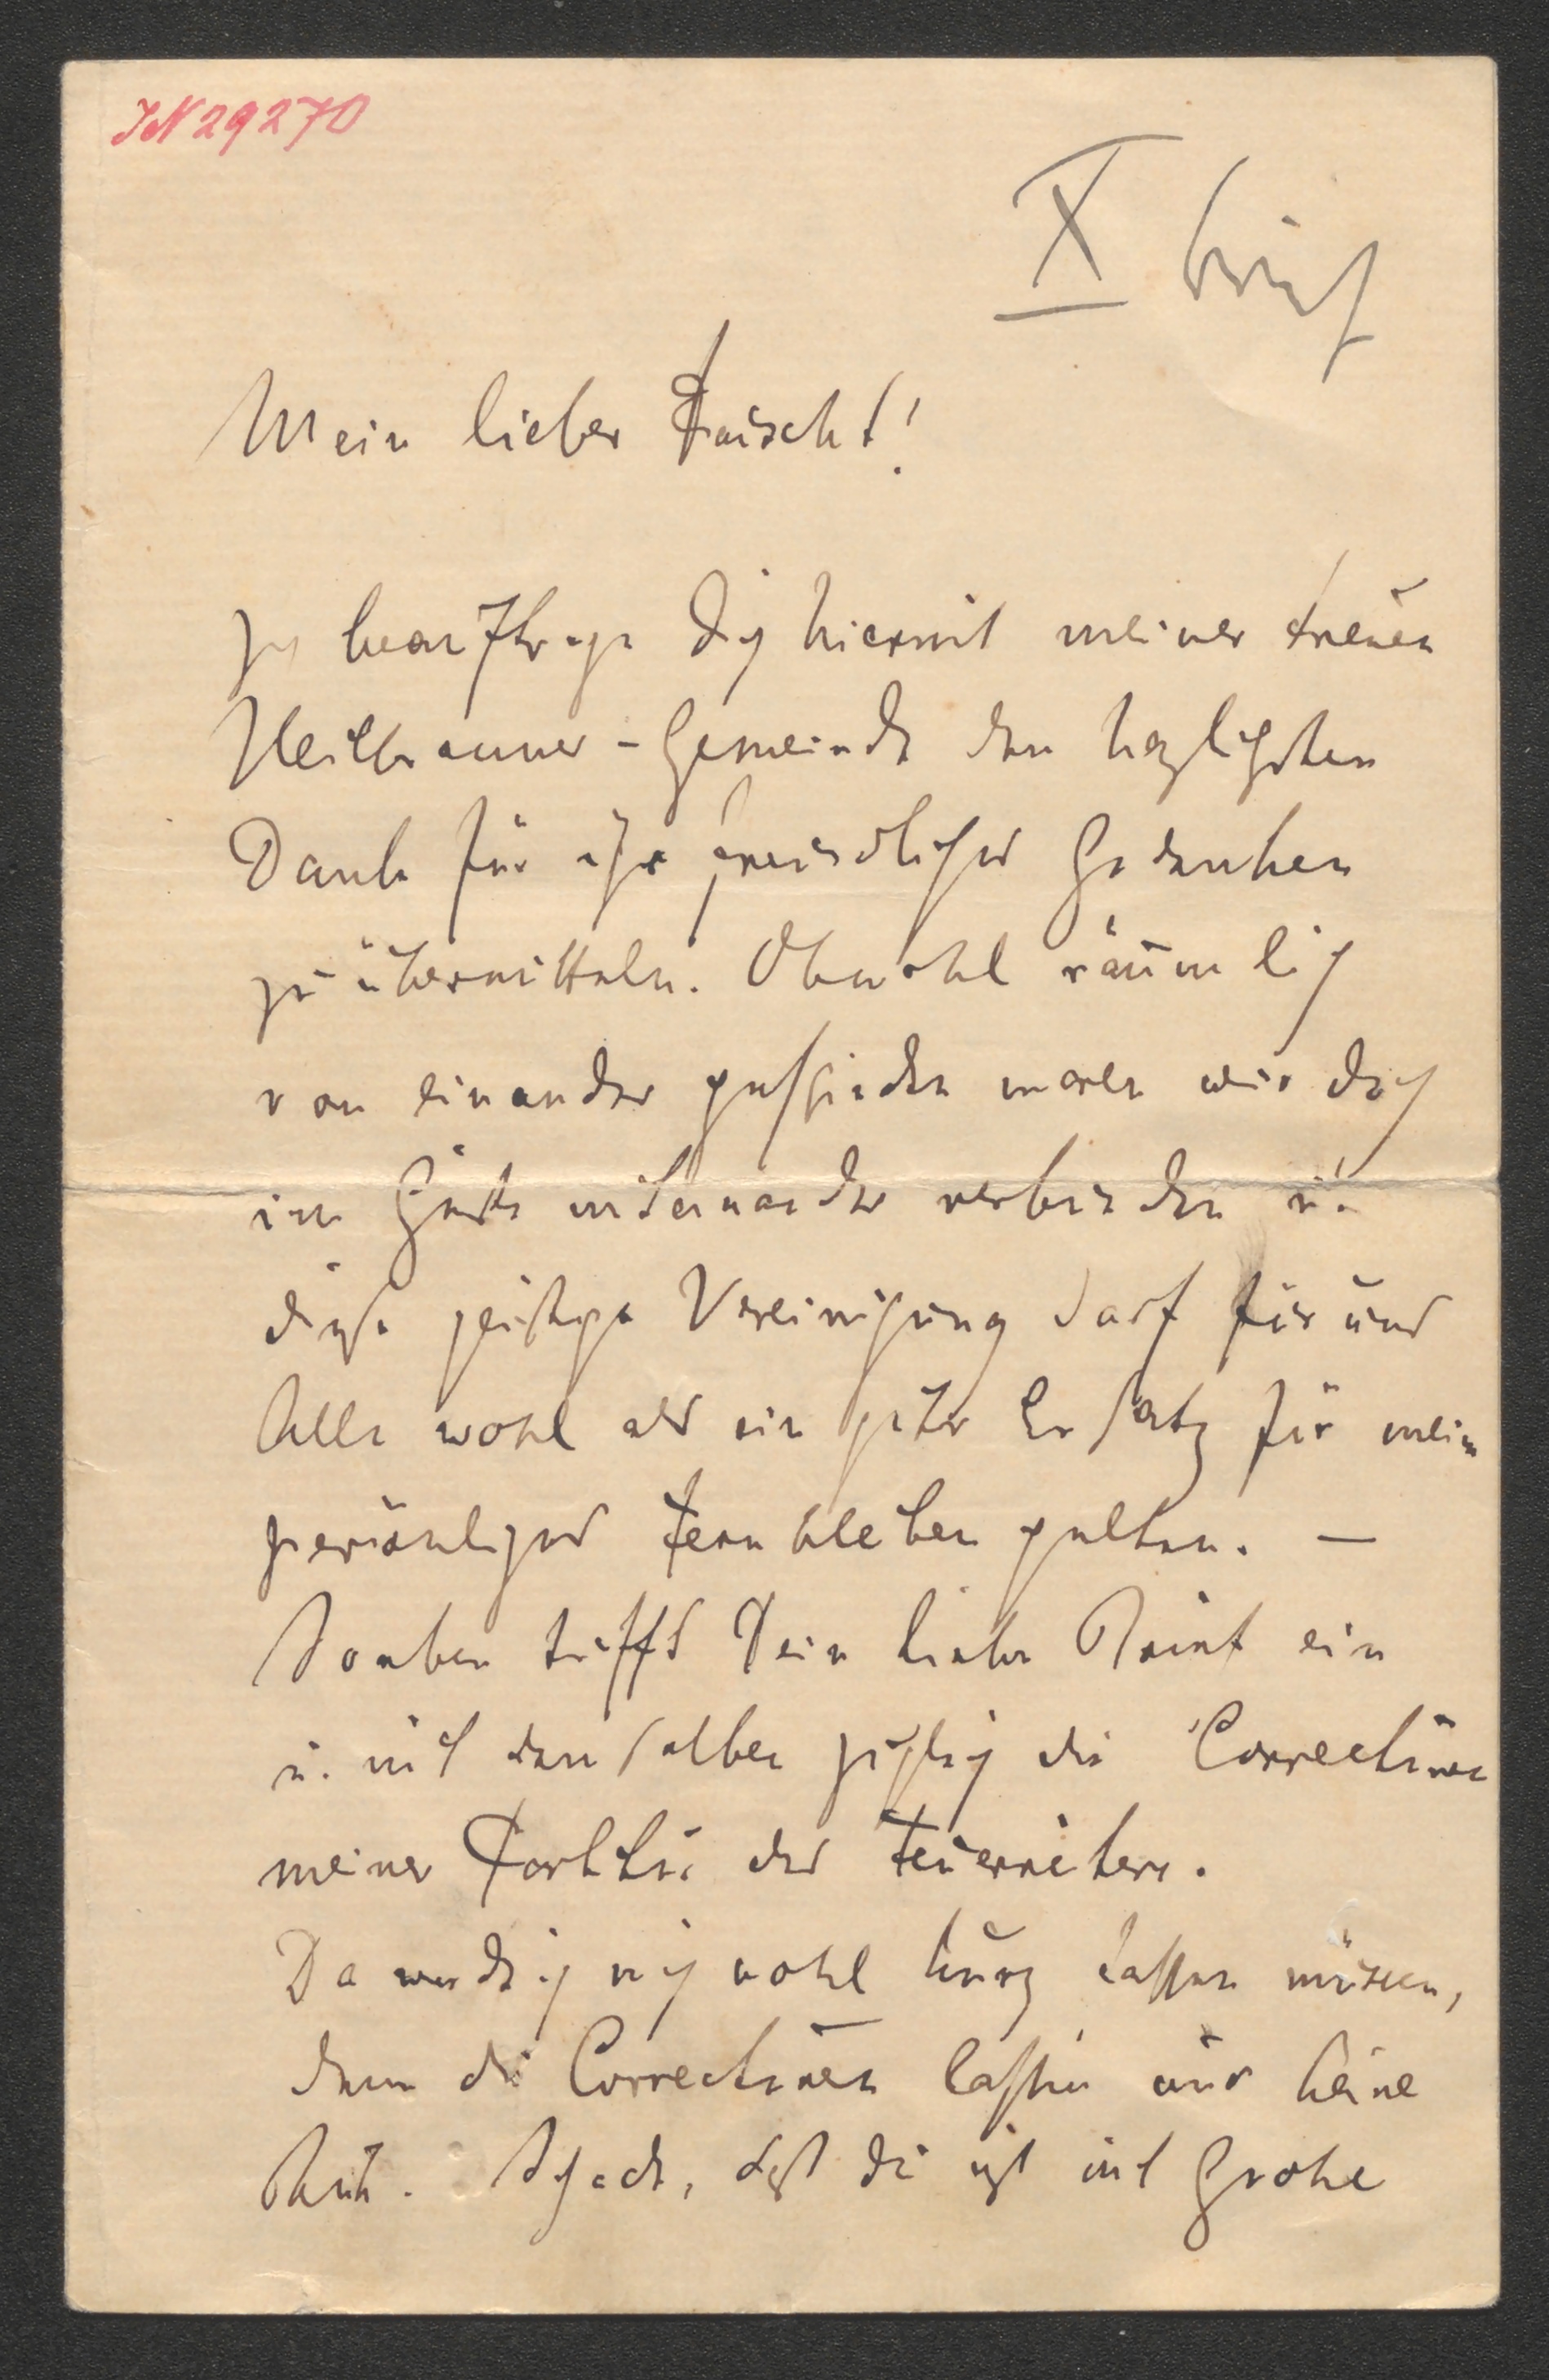 IN 29270
X Brief
Mein lieber Faisst!
Ich beauftrage Dich hiermit meiner treuen
Heilbronner-Gemeinde den herzlichsten
Dank für ihr freundliches Gedenken
zu übermitteln. Obwohl räumlich
von einander geschieden waren wir doch
im Geiste miteinander verbunden u.
diese geistige Vereinigung darf für uns
Alle wohl als ein guter Ersatz für mein
persönliches Fernbleiben gelten. —
Soeben trifft Dein lieber Brief ein
u. mit demselben zugleich die Correcturen
meiner Partitur des Feuerreiters.
Da werde ich mich wohl kurz fassen müssen,
denn die Correcturen lassen mir keine
Ruh. Schade, dass Du nicht mit Grohe